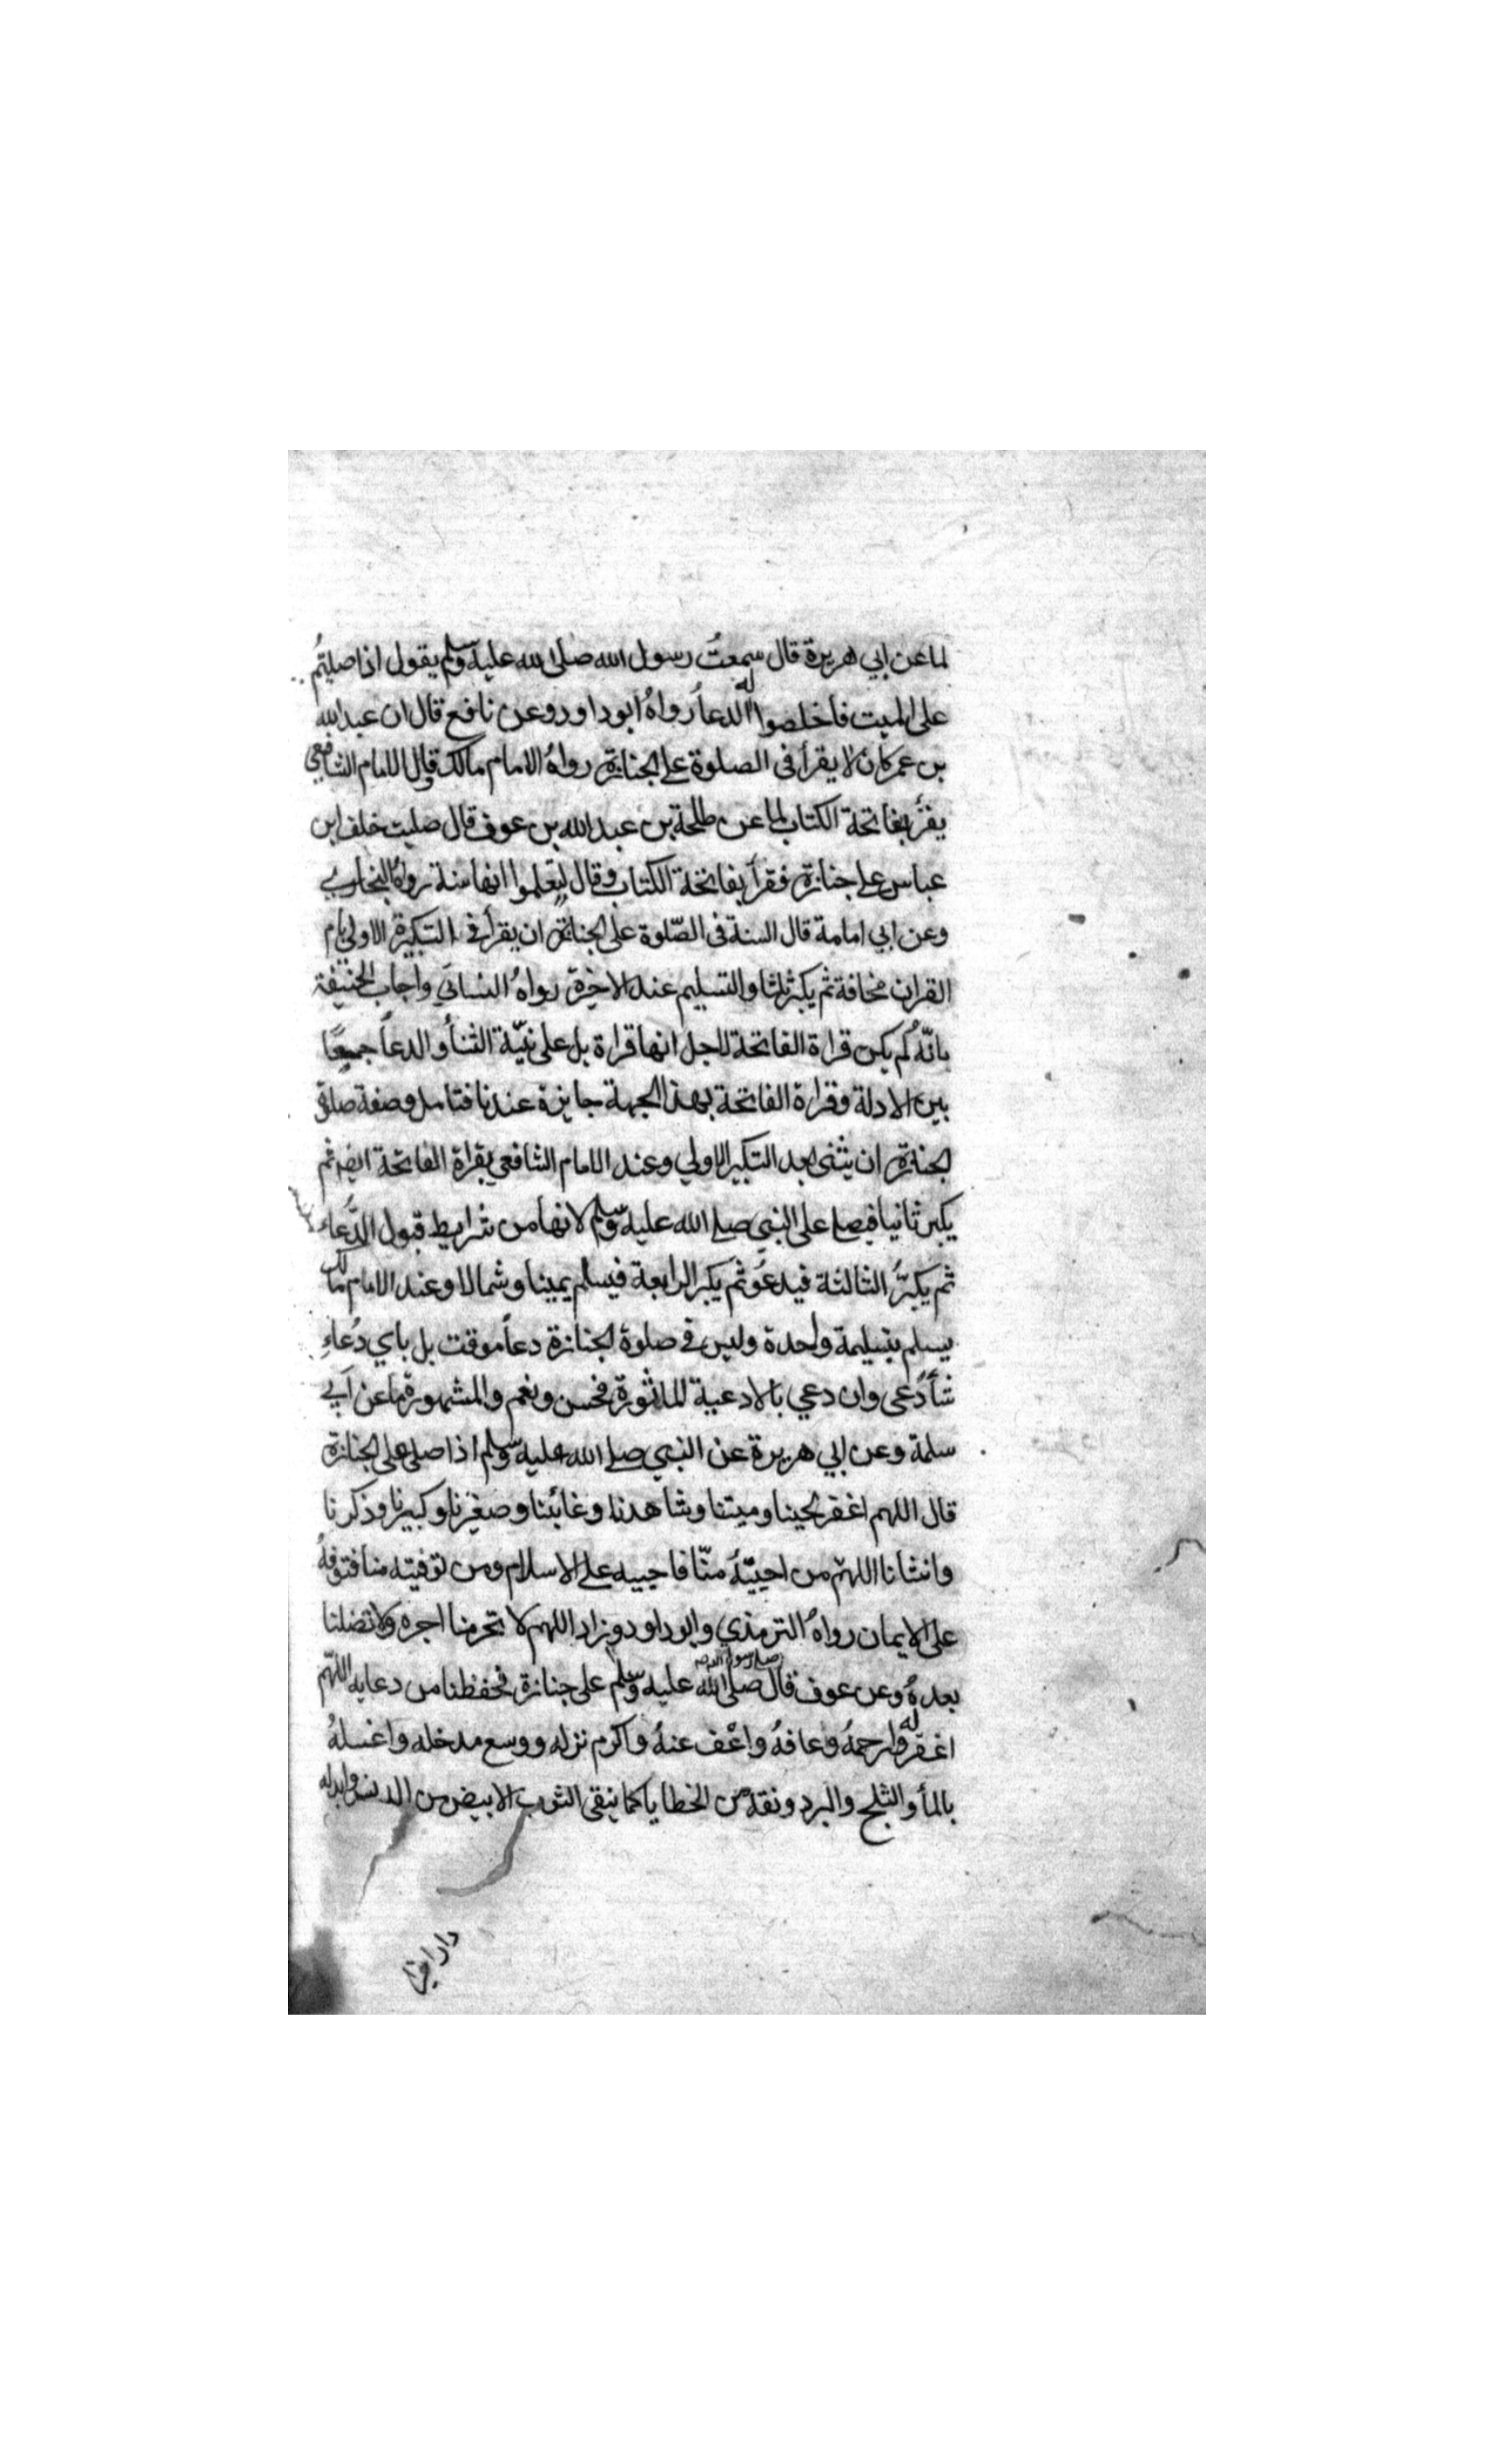 لما عن ابي هريرة قال سمعتُ رسول الله صلى الله عليه وسلم يقول اذا صليتُم
على الميت فأخلصوا له الدعاَ رواهُ ابو داود وعن نافع قال ان عبد الله
بن عمر كان لا يقرأ فى الصلوة على الجنازة رواهُ الامام مالك وقال الامام الشافعي
يقرأ بفاتحة الكتاب لما عن طلحة بن عبد الله بن عوف قال صليت خلف ابن
عباس على جنازة فقرأ بفاتحة الكتاب وقال ليتعلموا انها سنة رواه البخاري
وعن ابي امامة قال السنة فى الصّلوة على الجنازة ان يقرأ فى التكبيرة الاولى بام
القران مخافة ثم يكبر ثلثا والتسليم عند الاخرة رواهُ النسائي واجاب الحنيفة
بانّهُ لم يكن قراة الفاتحة لاجل انها قراة بل على نيّة الثنأ والدعاَ جمعًا
بين الادلة وقراة الفاتحة بهذا الجهة جايزة عندنا فتامل وصفة صلوة
الجنازة ان يثنى بعد التكبير الاولي وعند الامام الشافعي يقراة الفاتحة ايضا ثم
يكبر ثانيا فيصل على النبي صلى الله عليه وسلم لانها من شرايط قبول الدُّعاء
ثم يكبّرُ الثالثة فيدعُو ثم يكبر الرابعة فيسلم يمينا وشمالا وعند الامام مالك
يسلم بتسليمة واحدة وليس فى صلوة الجنازة دعاً موقت بل باي دُعاءِ
شأ دَعى وان دعي بالادعية الماثورة فحسن ونعم والمشهورة ما عن ابي
سلمة وعن ابي هريرة عن النبي صلى الله عليه وسلم اذا صلى على الجنازة
قال اللهم اغفر لحينا وميتنا وشاهدنا وغائبنا وصغيرنا وكبيرنا وذكرنا
وانثانا اللهمّ من احييتهُ منّا فاحييه على الاسلام ومن توفيته منا فتوفهُ
على الايمان رواهُ الترمذي وابو داود وزاد اللهم لا تحرمنا اجره ولا تضلنا
بعدهُ وعن عوف قال صلى رسول الله صلى الله عليه وسلم على جنازة فحفظنا من دعايه اللهمّ
اغفر له وارحمهُ وعافهُ واعْف عنهُ واكرم نزله ووسع مدخله واغسلهُ
بالمأ والثلج والبرد ونقه من الخطايا كما ينقى الثوب الابيض من الدنس وابدله
دارا خيرا